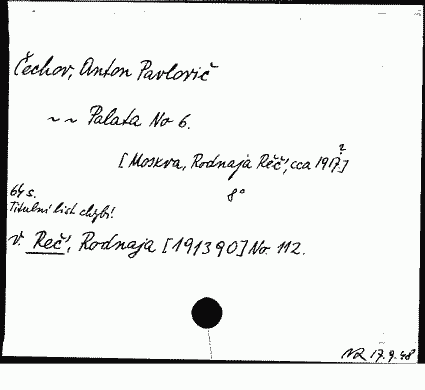 Čechov, Anton Pavlovič
~ ~ Palata No 6.
[Moskva, Rodnaja Rěč', cca 1917?]
64 s. 8°
Titulní list chybí!
v. Reč', Rodnaja [191390] No. 112.
17.9.48